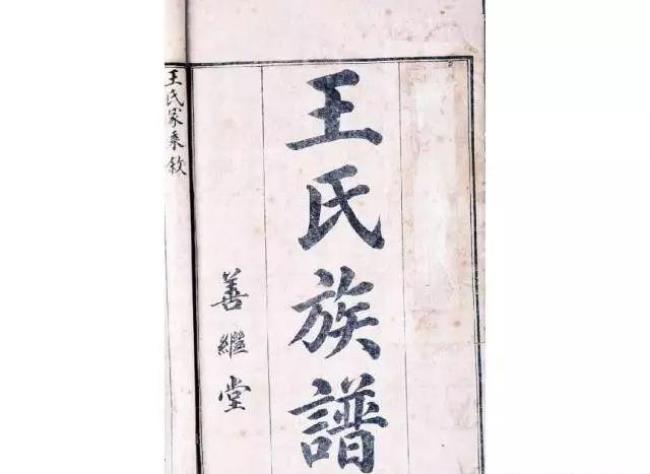 王氏族譜
善繼堂
王氏家乘敘